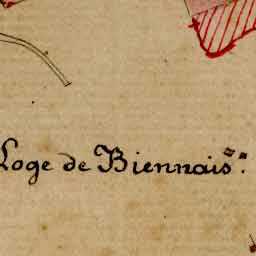 Loge de Biennais.